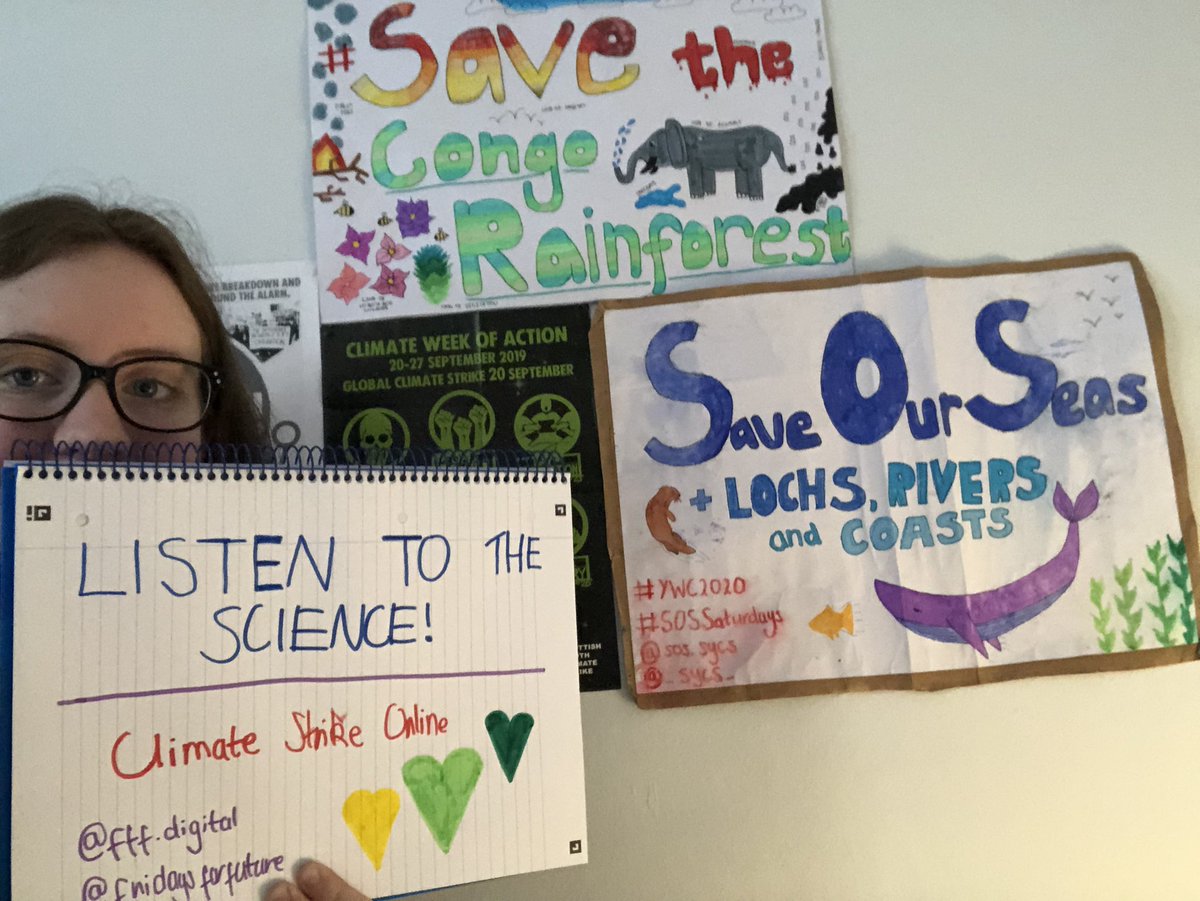 #Save the
Congo
Rainforest
BREAKDOWN AND
THE ALARM.
CLIMATE WEEK OF ACTION
20-27 SEPTEMBER 2019
GLOBAL CLIMATE STRIKE 20 SEPTEMBER
Save Our Seas
+ LOCHS, RIVERS
and COASTS
#YWC2020
#SOSSaturdays
@sos.sycs
@_sycs_
LISTEN TO THE
SCIENCE!
Climate Strike Online
@fff.digital
@fridaysforfuture